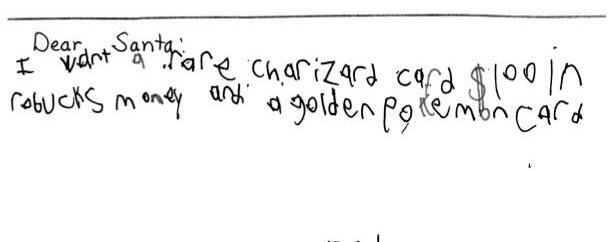 Dear Santa:
I want a rare charizard card $100 in
robucks money and a golden pokemon card